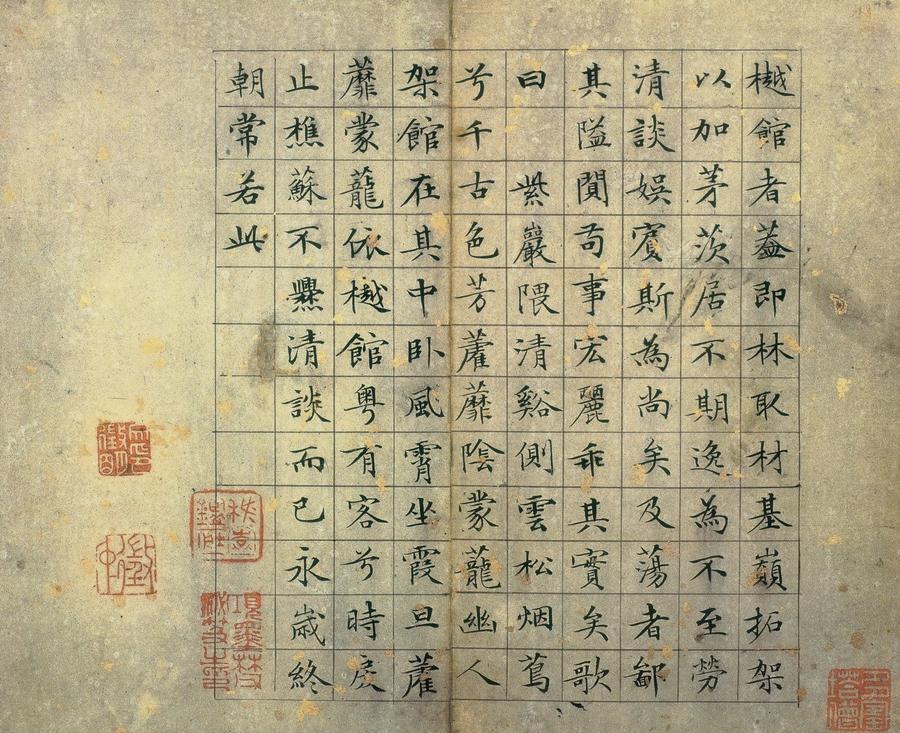 樾館者蓋即林取材基巔拓架
以加茅茨居不期逸為不至勞
清談娛賓斯為尚矣及蕩者鄙
其隘閴苟事宏麗乖其實矣歌
曰 紫巖隈清谿側雲松烟蔦
兮千古色芳藿蘼陰蒙蘢幽人
架館在其中臥風霄坐霞旦藿
蘼蒙蘢依樾館粵有客兮時戾
止樵蘇不爨清談而已永歲終
朝常若此